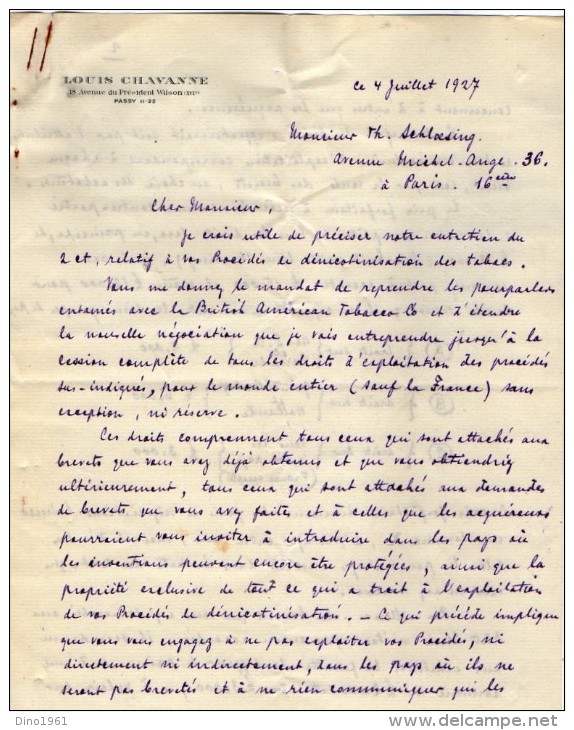 LOUIS CHAVANNE
18 Avenue du Président Wilson (XVIe)
PASSY 11-22
ce 4 Juillet 1927
Monsieur Th. Schloesing.
Avenue Michel-Ange. 36.
à Paris. 16ème
Cher Monsieur,
Je crois utile de préciser notre entretien du
2 ct, relatif à vos Procédés de dénicotinisation des tabacs.
Vous me donnez le mandat de reprendre les pourparlers
entamés avec la British American Tobacco Co et d'étendre
la nouvelle négociation que je vais entreprendre jusqu'à la
cession complète de tous les droits à exploitation des procédés
sus-indiqués, pour le monde entier (sauf la France) sans
exception, ni réserve.
Ces droits comprennent tous ceux qui sont attachés aux
brevets que vous avez déjà obtenus et que vous obtiendriez
ultérieurement, tous ceux qui sont attachés aux demandes
de brevets que vous avez faites et à celles que les acquéreurs
pourraient vous inviter à introduire dans les pays où
les inventions peuvent encore être protégées, ainsi que la
propriété exclusive de tout ce qui a trait à l'exploitation
de vos Procédés de dénicotinisation. - Ce qui précède implique
que vous vous engagez à ne pas exploiter vos Procédés, ni
directement ni indirectement, dans les pays où ils ne
seront pas brevetés et à ne rien communiquer qui les
Dino1961